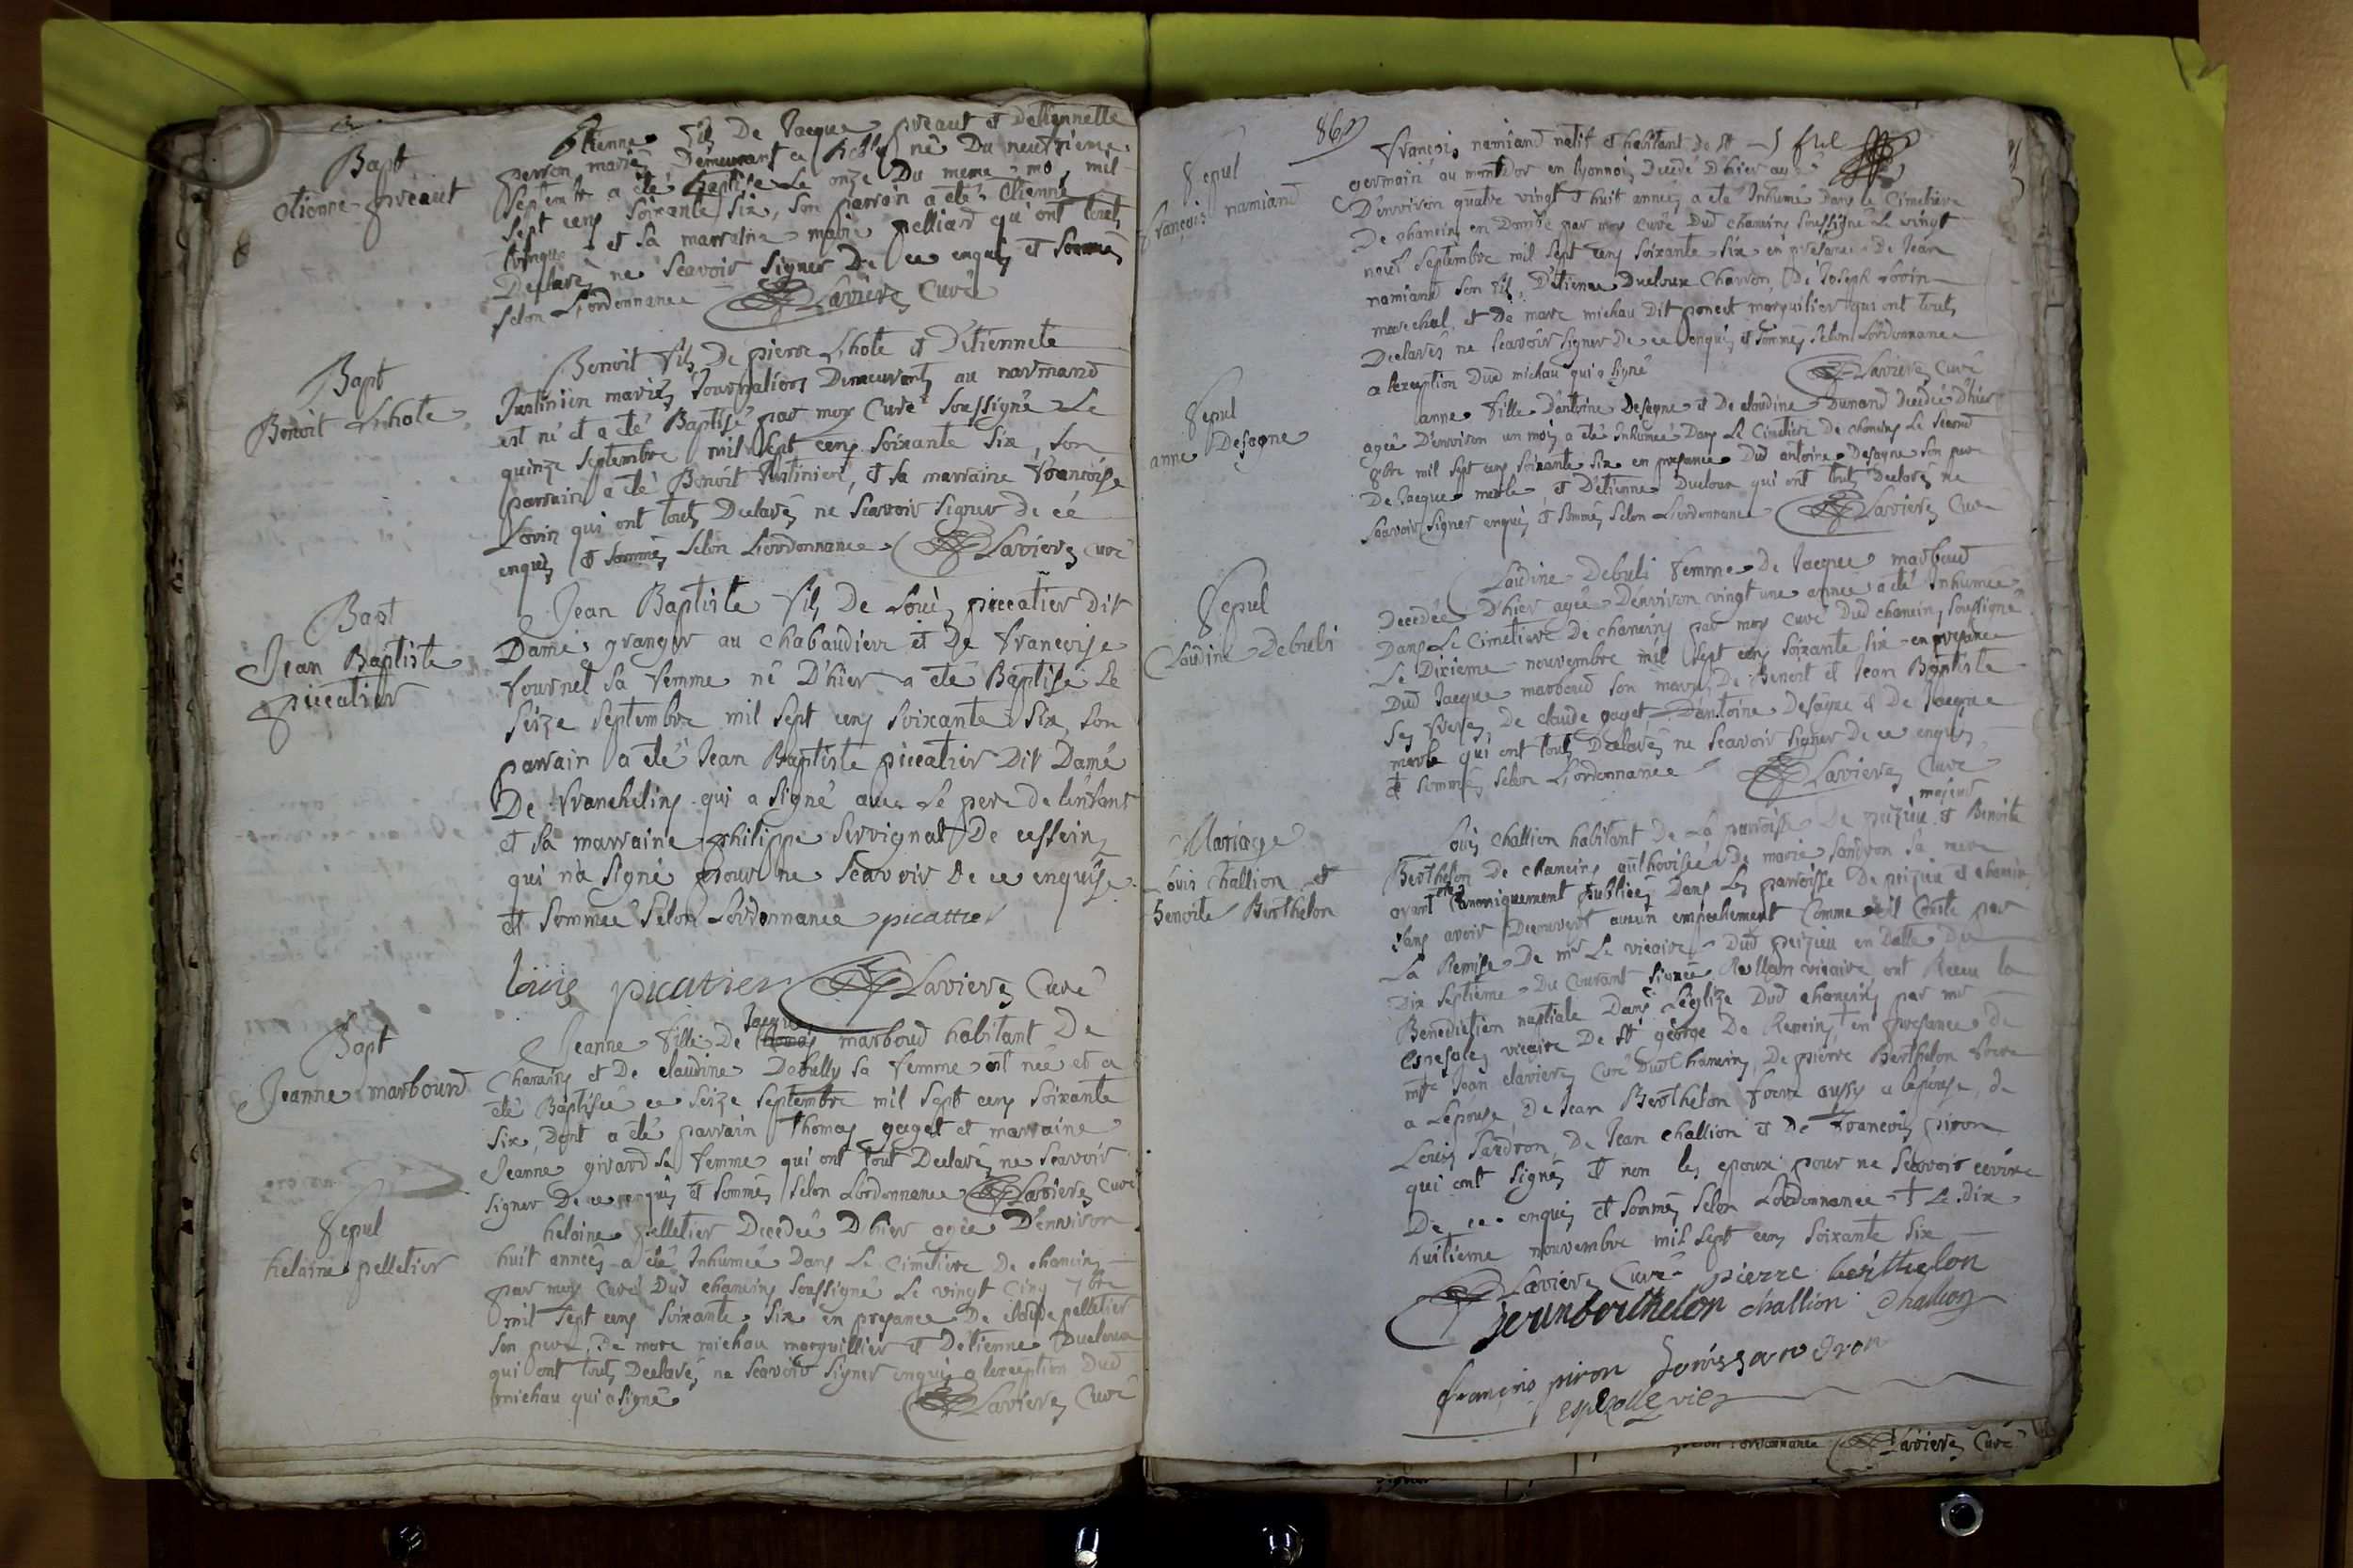 Bapt
etienne preaut
Etienne fils De Jacque preaut et Detiennette
perron mariés Demeurant a né Du neufvieme
Septembre a été Baptisé Le onze Du meme mois mil
Sept cens Soixante Six, Son parrain a été Etienne
et sa marraine marie pelliard qui ont touts
Declarés ne Scavoir Signer De ce enquis et Sommés
Selon L'ordonnance Lavieres Curé
Bapt
Benoit Lhote
Benoit fils De pierre Lhote et D'etiennete
Justinien mariés Journaliers Demeurants au marmand
est né et a été Baptisé par moy Curé Soussigné Le
quinze Septembre mil Sept cens Soixante Six, Son
parrain a été Benoit Justinien, et sa marraine francoise
Lorin qui ont touts Declarés ne Scavoir Signer de ce
enquis et Sommés Selon L'ordonnance Lavieres Curé
Bapt
Jean Baptiste
piccatier
Jean Baptiste fils De Louis piccatier Dit
Damé granger au Chabaudier et De francoise
fournet Sa femme né D'hier a été Baptisé Le
Seize Septembre mil Sept cens Soixante Six, Son
parrain a été Jean Baptiste piccatier Dit Damé
De franchelins qui a Signé avec Le pere de l'enfant
et sa marraine philippe Servignat De cesseins
qui n'a Signé pour ne Scavoir De ce enquise
et Sommée Selon L'ordonnance picattier
Louis picatier Lavieres Curé
Bapt
Jeanne marbourd
Jacque
Jeanne fille De marboud habitant De
Chaneins et De claudine Debully sa femme est née et a
été Baptisée ce Seize Septembre mil Sept cens Soixante
Six, Dont a été parrain Thomas gaget et marraine
Jeanne girard sa femme qui ont tout Declarés ne Scavoir
Signer De ce enquis et Sommés Selon L'ordonnance Lavieres Curé
Sepul
helaine pelletier
helaine pelletier Decedée D'hier agée D'environ
huit années a été Inhumée Dans Le Cimetiere De chaneins
par moy Curé Dud chaneins Soussigné Le vingt Cinq 7bre
mil Sept cens Soixante Six en presance De claude pelletier
Son pere, De marc michau marguillier et Detienne Ducloux
qui ont touts Declarés ne Scavoir Signer enquis a l'exception Dud
michau qui a Signé Lavieres Curé
86
Sepul
François namiand
François namiand natif et habitant de St
germain au montdor en lyonnois Decedé D'hier agé
D'environ quatre vingt et huit années a été Inhumé Dans le Cimetiere
De chaneins en Dombe par moy Curé Dud chaneins Soussigné Le vingt
neuf Septembre mil Sept cens Soixante Six en presance De Jean
namiand Son fils, D'etienne Ducloux Charron, De Joseph Lorin
marechal, et De marc michau Dit poncet marguilier qui ont touts
Declarés ne Scavoir Signer De ce enquis et Sommés Selon L'ordonnance
a l'exception Dud michau qui a Signé Lavieres Curé
Sepul
anne Desagne
anne fille D'antoine Desagne et De claudine Dunand Decedée D'hier
agée D'environ un mois a été Inhumée Dans Le Cimetiere De chaneins Le Second
8bre mil Sept cens Soixante Six en presance Dud antoine Desagne Son pere
De Jacque merle et D'etienne Ducloux qui ont touts Declarés ne
Scavoir Signer enquis et Sommés Selon L'ordonnance Lavieres Curé
Sepul
Claudine Debuli
Claudine Debuli femme De Jacque marboud
Decedée D'hier agée D'environ vingt une année a été Inhumée
Dans Le Cimetiere De chaneins par moy curé Dud chaneins Soussigné
Le Dixieme nouvembre mil Sept cens Soixante Six en presance
Dud Jacque marboud Son mary, De Benoit et Jean Baptiste
Ses freres, De claude gaget D'antoine Desagne et De Jacque
merle qui ont touts Declarés ne Scavoir Signer De ce enquis
et Sommés Selon L'ordonnance Lavieres Curé
Mariage
Louis Challion et
Benoite Berthelon
majeur
Louis Challion habitant De La parroisse De peizieu et Benoite
Berthelon De chaneins authorisée De marie Sandron Sa mere
ayant été Canoniquement publiées Dans Les parroisse De peizieu et chaneins
Sans avoir Decouvert aucun empechement Comme il Conste par
La Remise De mr Le vicaire Dud peizieu en Datte Du
Dix Septieme Du Courant Signée vicaire ont Receu la
Benediction nuptiale Dans L'eglize Dud chaneins par mr
vicaire De St george De Reneins en presance de
mre Jean Lavieres Curé Dud Chaneins, De pierre Berthelon frere
a Lepouse De Jean Berthelon frere aussy a lepouse, de
Louis Sandron, De Jean challion et De francois piron
qui ont Signés et non les epoux pour ne Scavoir ecrire
De ce enquis et Sommés Selon L'ordonnance Le Dix
huitieme nouvembre mil Sept cens Soixante Six
Lavieres Curé pierre berthelon
Jean berthelon challion challion
francois piron Louis sandron
selon l'ordonnance Lavieres Curé